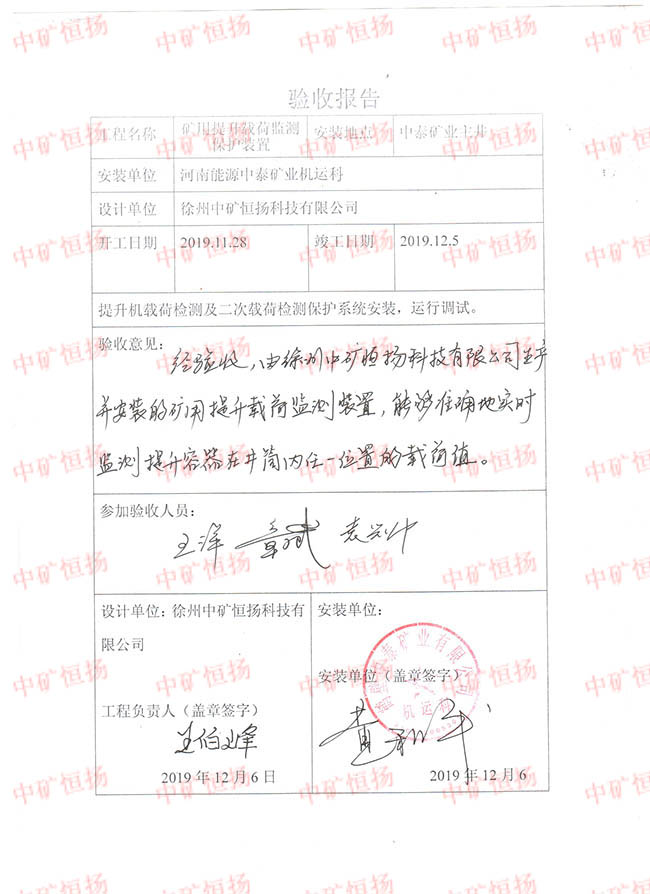 验收报告
工程名称 矿用提升载荷监测 安装地点 中泰矿业主井
保护装置
安装单位 河南能源中泰矿业机运科
设计单位 徐州中矿恒扬科技有限公司
开工日期 2019.11.28 竣工日期 2019.12.5
提升机载荷检测及二次载荷检测保护系统安装，运行调试。
验收意见：
经验收，由徐州中矿恒扬科技有限公司生产
并安装的矿用提升载荷监测装置，能够准确地实时
监测提升容器在井筒内任一位置的载荷值。
参加验收人员：
王洋
设计单位：徐州中矿恒扬科技有
限公司
工程负责人（盖章签字）
2019 年 12 月 6 日
安装单位：
安装单位（盖章签字）
泰矿业有限公司
机运科
2019 年 12 月 6
中矿恒扬